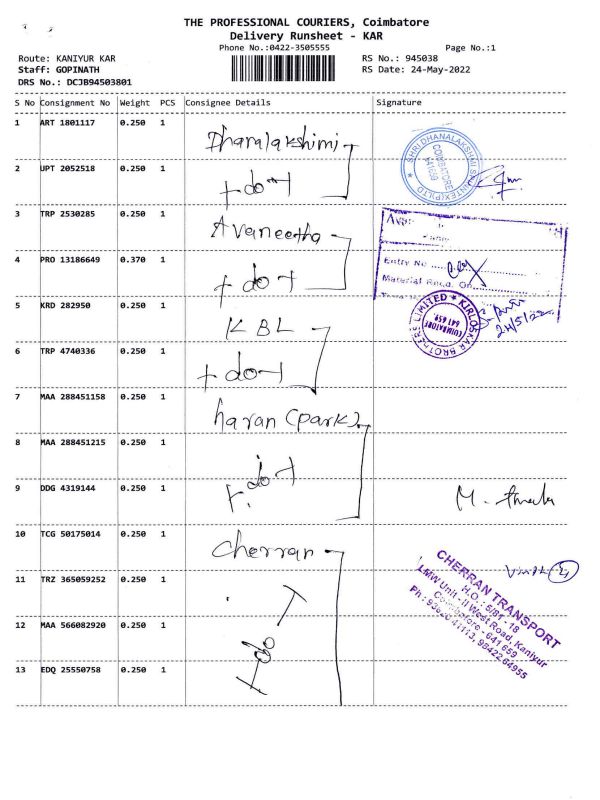 THE PROFESSIONAL COURIERS, Coimbatore
Delivery Runsheet - KAR
Phone No.:0422-3505555
Page No.:1
Route: KANIYUR KAR
RS No.: 945038
Staff: GOPINATH
RS Date: 24-May-2022
DRS No.: DCJB94503801
S No Consignment No Weight PCS Consignee Details Signature
1 ART 1801117 0.250 1 Dhanalakshimi
2 UPT 2052518 0.250 1 + do +
SHRI DHANALAKSHMI
COIMBATORE
641659
3 TRP 2530285 0.250 1 Avaneetha
4 PRO 13186649 0.370 1 + do +
Entry No
Material Recd. On
5 KRD 282950 0.250 1 KBL
KIRLOSKAR BROTHERS LIMITED
COIMBATORE
641 659
24/5/22
6 TRP 4740336 0.250 1 + do +
7 MAA 288451158 0.250 1 haran (park)
8 MAA 288451215 0.250 1 + do +
9 DDG 4319144 0.250 1 M.
10 TCG 50175014 0.250 1 Cherran
11 TRZ 365059252 0.250 1
12 MAA 566082920 0.250 1 + do +
13 EDQ 25550758 0.250 1
CHERRAN TRANSPORT
H.O. : 5/81 - 18
LMW Unit - II West Road, Kaniyur
Coimbatore - 641 659
98422 64955